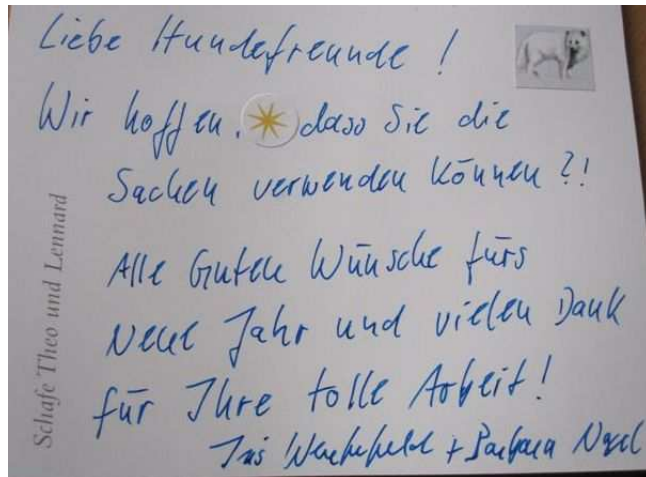 Liebe Hundefreunde!
Wir hoffen, dass Sie die
Sachen verwenden können?!
Alle Guten Wünsche fürs
Neue Jahr und vielen Dank
für Ihre tolle Arbeit!
+ Barbara Nagel
Schafe Theo und Lennard